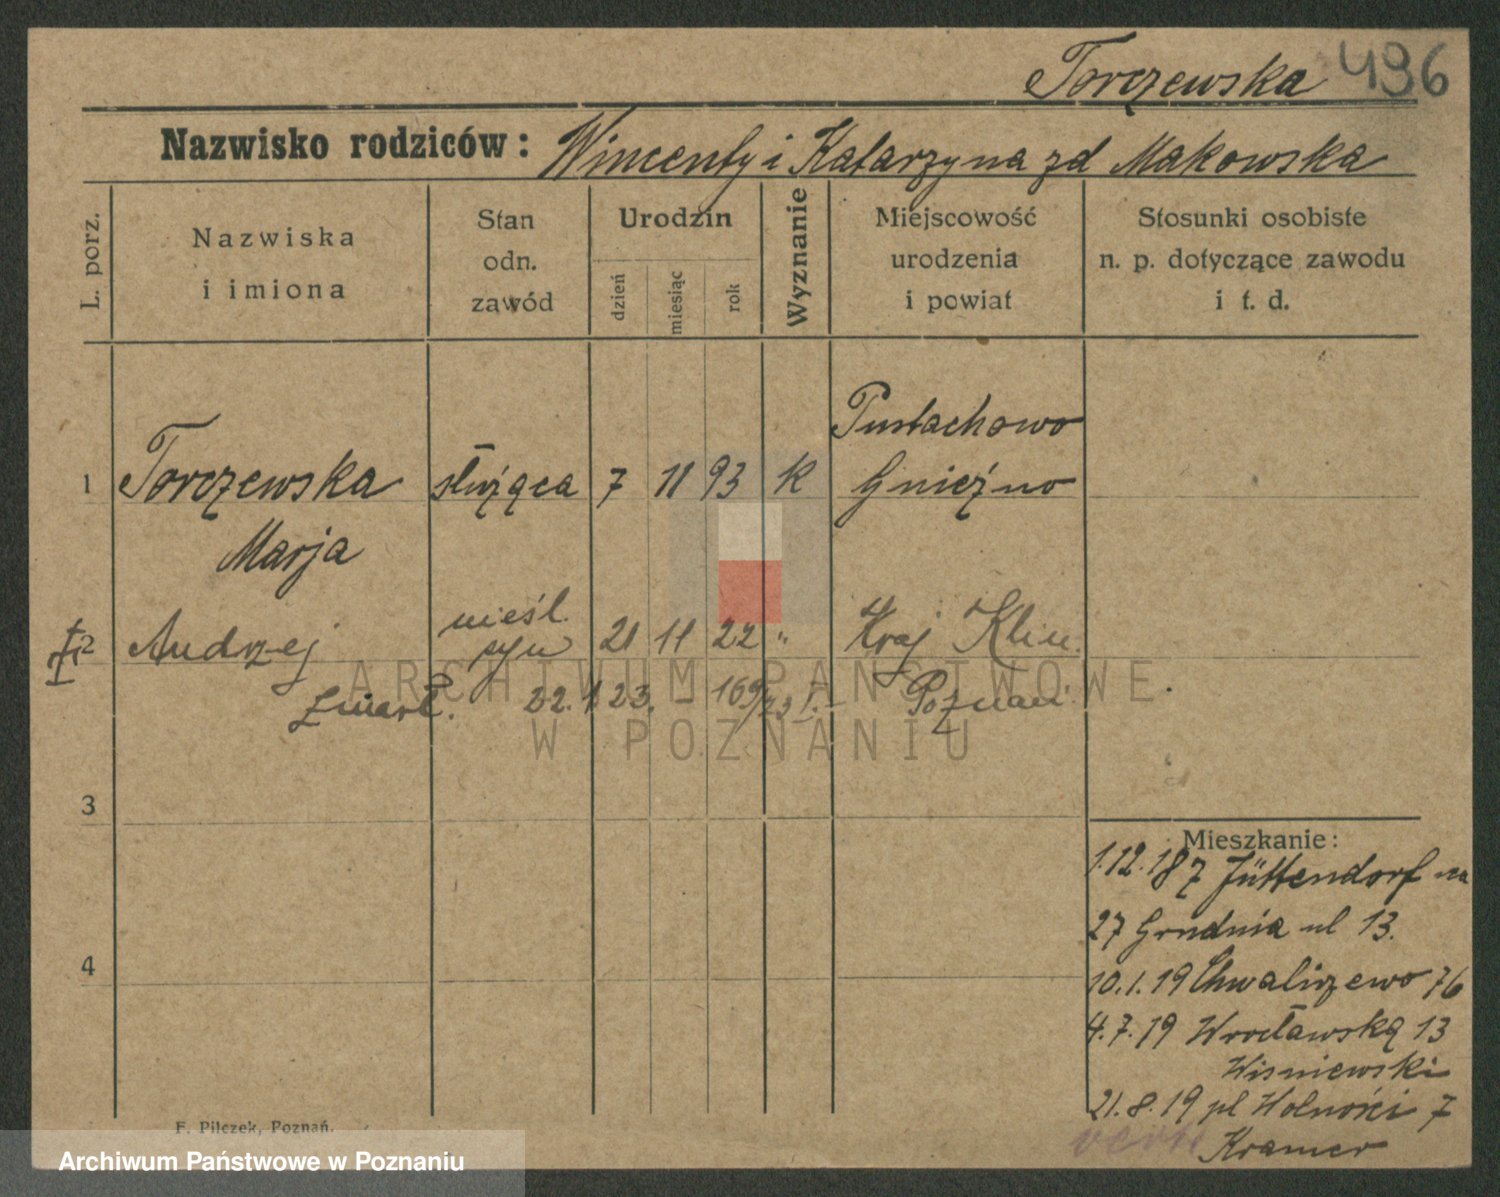 Torczewska 496
Nazwisko rodziców: Wincenty i Katarzyna zd Makowska
L. porz.
Nazwiska
i imiona
Stan
odn.
zawód
Urodzin
dzień
miesiąc
rok
Wyznanie
Miejscowość
urodzenia
i powiat
Stosunki osobiste
n. p. dotyczące zawodu
i t. d.
Pustachowo
1 Torczewska służąca 7 11 93 K Gnieźno
Marja
nieśl.
2 Andrzej syn 21 11 22 " Kraj Klin.
zmarł. 22.1.23. – 169/23 I. – Poznań
ARCHIWUM PAŃSTWOWE
W POZNANIU
3
4
Mieszkanie:
1.12.18 7 Jüttendorf na
27 Grudnia ul 13.
10.1.19 Chwaliszewo 76
4.7.19 Wrocławską 13
Wisniewski
21.8.19 pl Wolności 7
Kramer
F. Pilczek, Poznań.
Archiwum Państwowe w Poznaniu